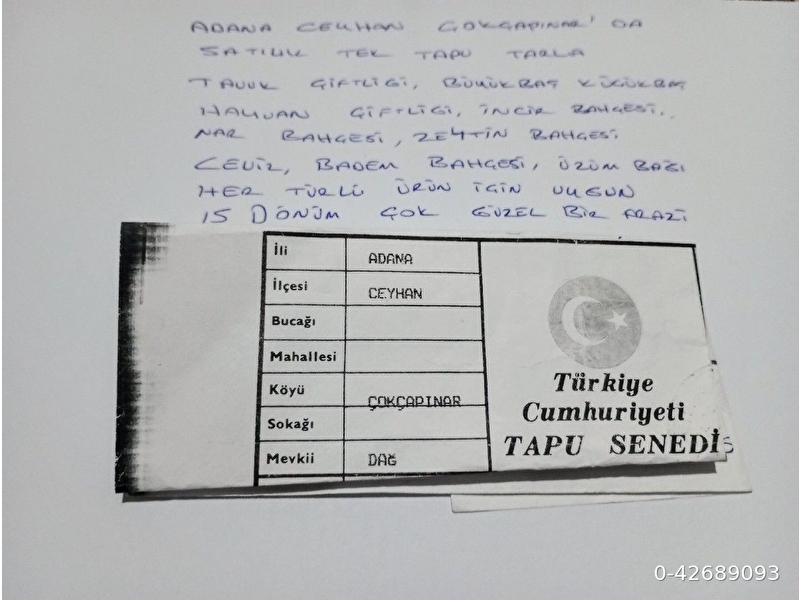 ADANA CEYHAN GÖKÇAPINAR'DA
SATILIK TEK TAPU TARLA
TAVUK ÇİFTLİĞİ, BÜYÜKBAŞ KÜÇÜKBAŞ
HAYVAN ÇİFTLİĞİ, İNCİR BAHÇESİ,
NAR BAHÇESİ, ZEYTİN BAHÇESİ
CEVİZ, BADEM BAHÇESİ, ÜZÜM BAĞI
HER TÜRLÜ ÜRÜN İÇİN UYGUN
15 DÖNÜM ÇOK GÜZEL BİR ARAZİ
İli ADANA
İlçesi CEYHAN
Bucağı
Mahallesi
Köyü ÇOKÇAPINAR
Sokağı
Mevkii DAĞ
Türkiye
Cumhuriyeti
TAPU SENEDİ
0-42689093